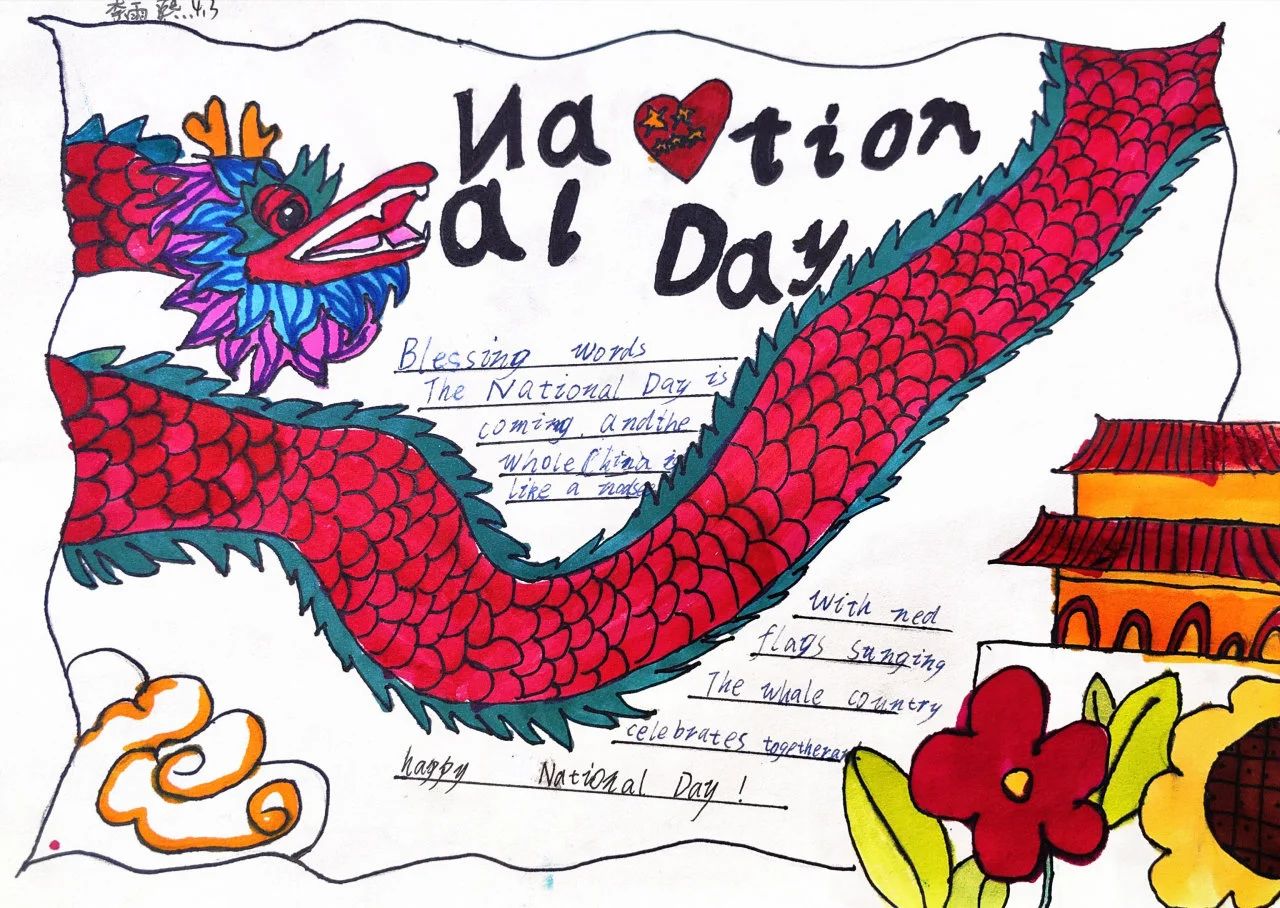 李雨 4.3
Na tion
al Day
Blessing words
The National Day is
coming, and the
whole China is
like a
With red
flags sunging
The whale country
celebrates together
happy National Day!